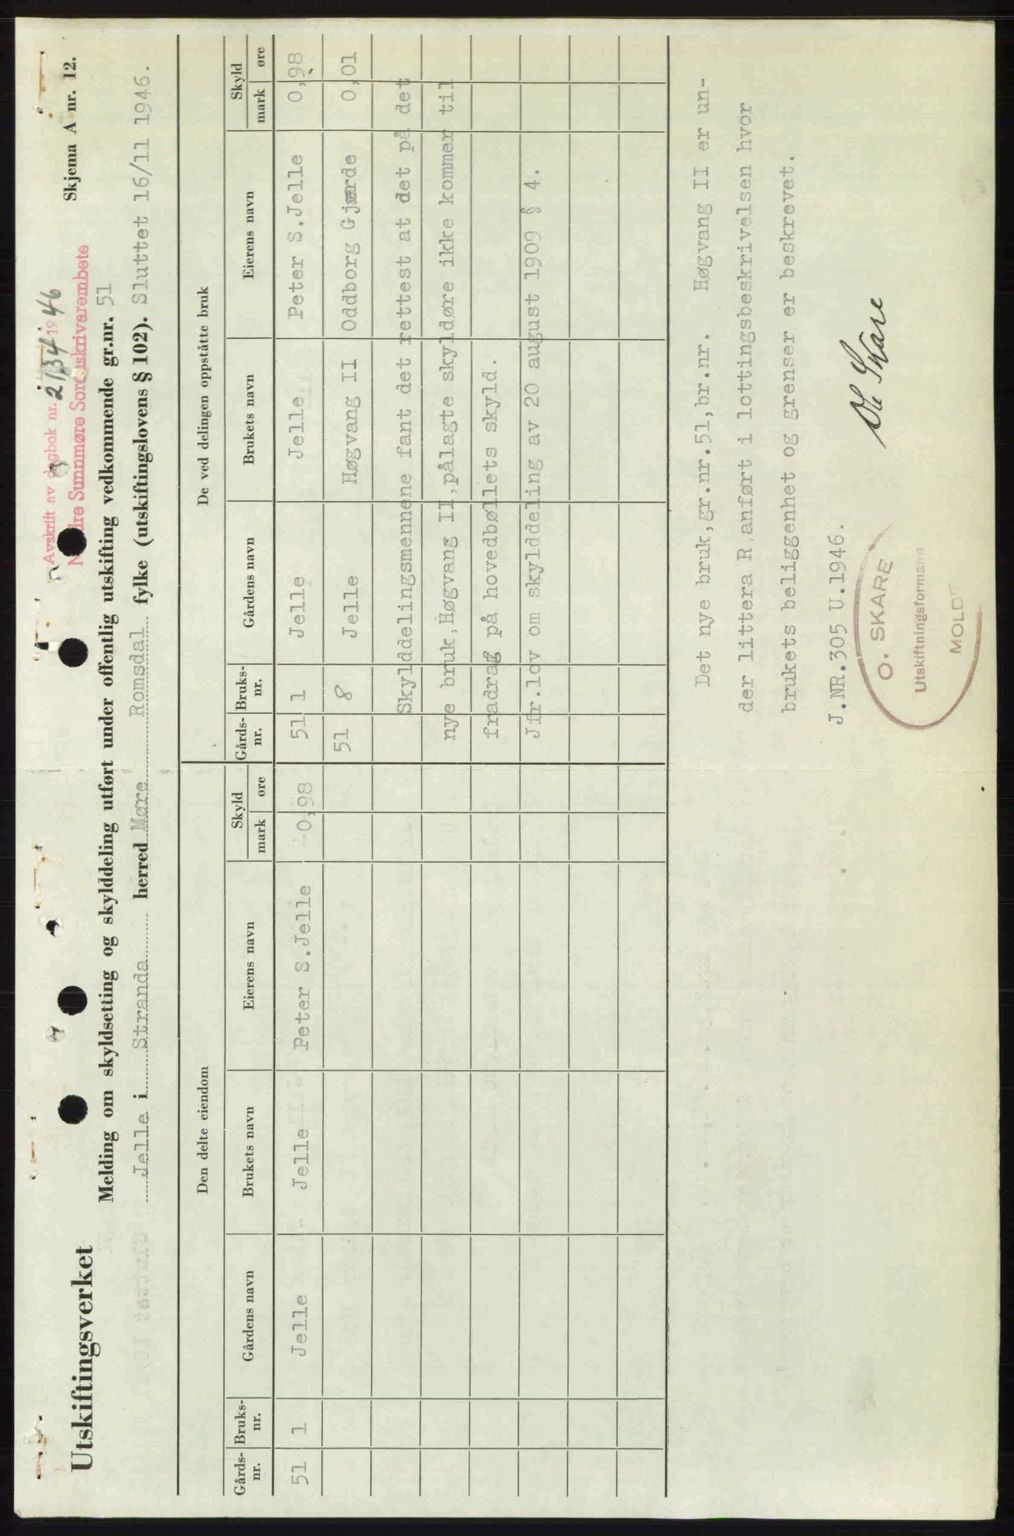 Utskiftingsverket
Skjema A nr. 12.
Avskrift av dagbok nr. 2134 1946
Nordre Sunnmøre Sorenskrivarembete
Melding om skyldsetting og skylddeling utført under offentlig utskifting vedkommende gr.nr. 51
Jelle i Stranda herred Møre Romsdal fylke (utskiftingslovens § 102). Sluttet 16/11 1946.
Den delte eiendom
De ved delingen oppståtte bruk
Gårds-nr. Bruks-nr. Gårdens navn Brukets navn Eierens navn Skyld mark øre Gårds-nr. Bruks-nr. Gårdens navn Brukets navn Eierens navn Skyld mark øre
51 1 Jelle Jelle Peter S.Jelle 0,98 51 1 Jelle Jelle Peter S.Jelle 0,98
51 8 Jelle Høgvang II Oddborg Gjærde 0,01
Skylddelingsmennene fant det rettest at det på det
nye bruk,Høgvang II,pålagte skyldøre ikke kommer til
fradrag på hovedbøllets skyld.
Jfr.lov om skylddeling av 20 august 1909 § 4.
Det nye bruk,gr.nr.51,br.nr. Høgvang II er un-
der littera R anført i lottingsbeskrivelsen hvor
brukets beliggenhet og grenser er beskrevet.
J.NR.305 U.1946.
Ole Skare
O. SKARE
Utskiftningsformann
MOLDE